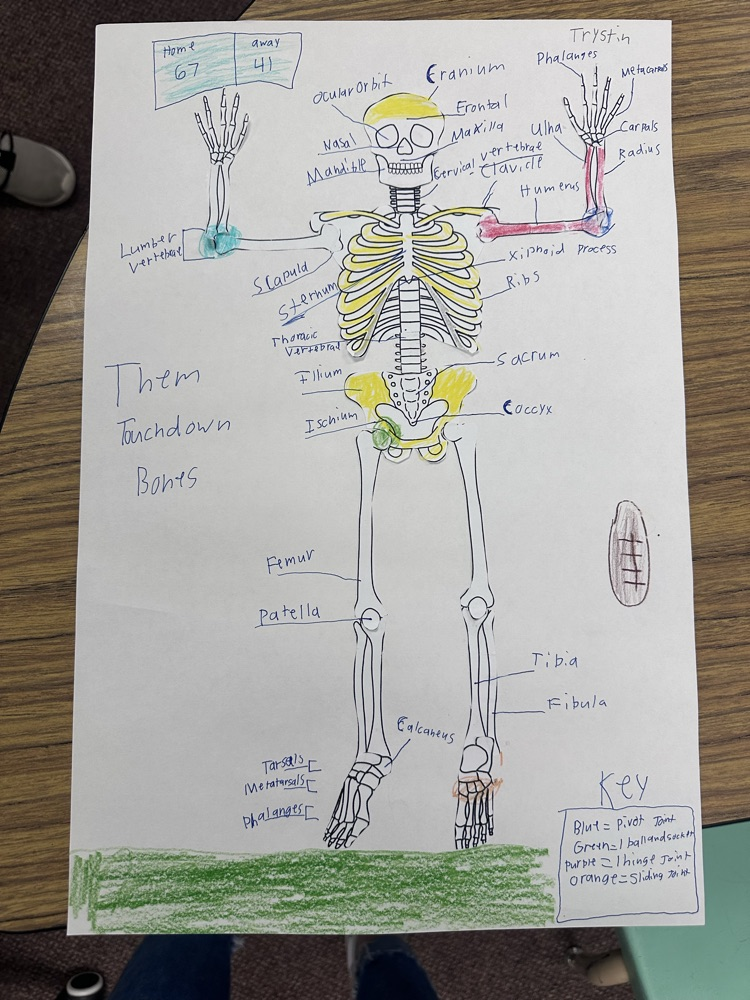 Home
67
away
41
Trystin
Phalanges
Metacarpals
Cranium
Ocular Orbit
Frontal
Nasal
Maxilla
Mandible
Cervical vertebrae
Clavicle
Ulna
Carpals
Radius
Humerus
Lumber
vertebrae
Scapuld
Sternum
Xiphoid Process
Ribs
Thoracic
vertebrae
Illium
Sacrum
Ischium
Coccyx
Them
Touchdown
Bones
Femur
Patella
Tibia
Fibula
Calcaneus
Tarsals
Metatarsals
Phalanges
Key
Blue = Pivot Joint
Green=1 ball and socket
Purple =1 hinge Joint
Orange=Sliding Joint